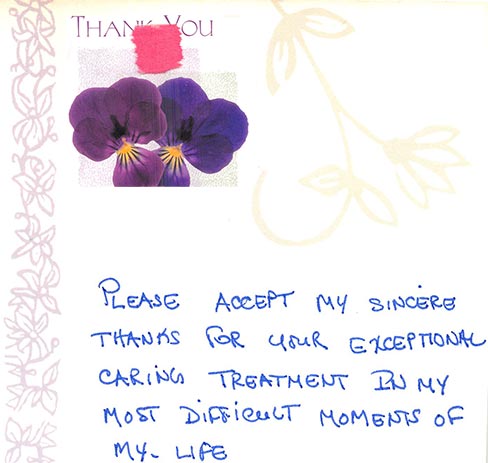 THANK YOU
PLEASE ACCEPT MY SINCERE
THANKS FOR YOUR EXCEPTIONAL
CARING TREATMENT IN MY
MOST DIFFICULT MOMENTS OF
MY. LIFE